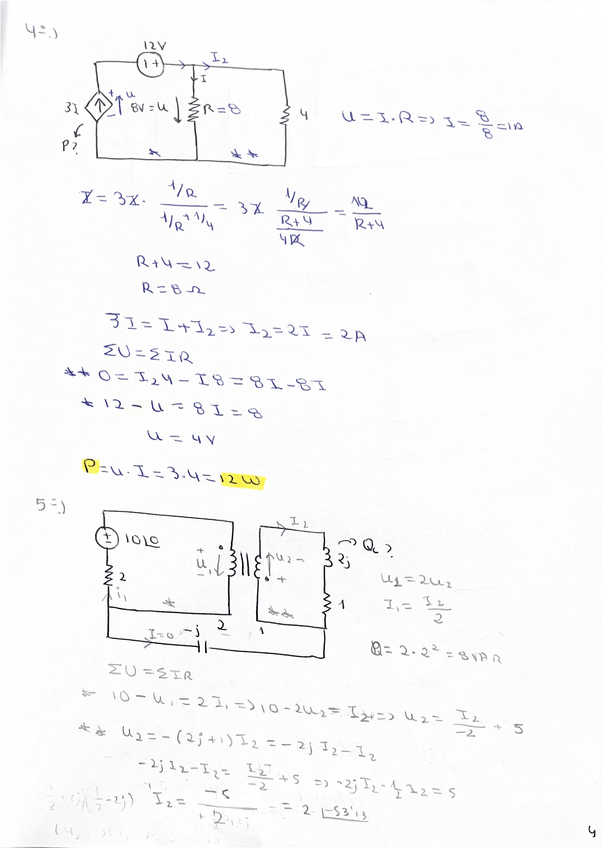 4-.)
12V
I2
I
3I
u
8V=u
R=8
4
u = I.R => I = 8/8 = 1A
P?
*
**
I = 3I · (1/R)/(1/R + 1/4) = 3I (1/R)/((R+4)/4R) = 12/(R+4)
R+4=12
R=8 Ω
3I = I + I2 => I2 = 2I = 2A
ΣU = ΣIR
** 0 = I2 4 - I8 = 8I - 8I
* 12 - u = 8I = 8
u = 4V
P = u·I = 3.4 = 12W
5-.)
I2
10∠0
u1
u2
2j
Qc?
2
i1
1
*
**
2
1
I=0
-j
u1 = 2u2
I1 = I2/2
Q = 2·2² = 8VAR
ΣU = ΣIR
10 - u1 = 2I1 => 10 - 2u2 = I2 => u2 = I2/-2 + 5
** u2 = -(2j+1)I2 = -2jI2 - I2
-2jI2 - I2 = I2/-2 + 5 => -2jI2 - 1/2 I2 = 5
I2 = = 2 ∠-53'13
4